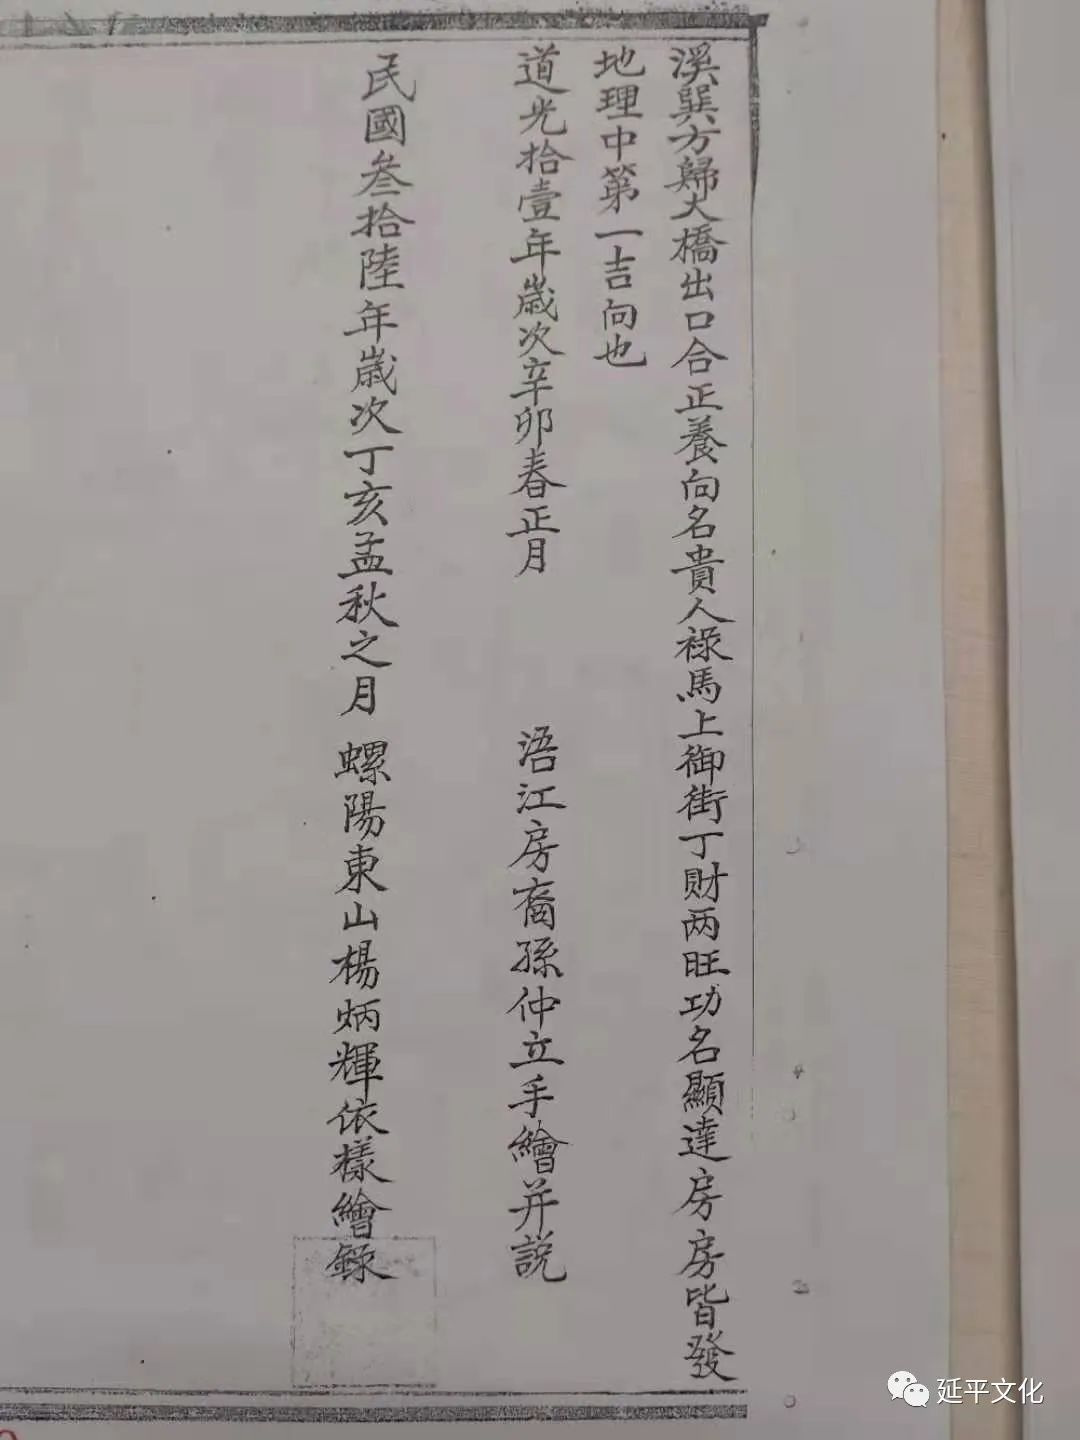 溪巽方歸大橋出口合正養向名貴人祿馬上御街丁財两旺功名顯達房房皆發
地理中第一吉向也
道光拾壹年歲次辛卯春正月 浯江房裔孫仲立手繪并説
民國叁拾陸年歲次丁亥孟秋之月 螺陽東山楊炳輝依樣繪錄
延平文化